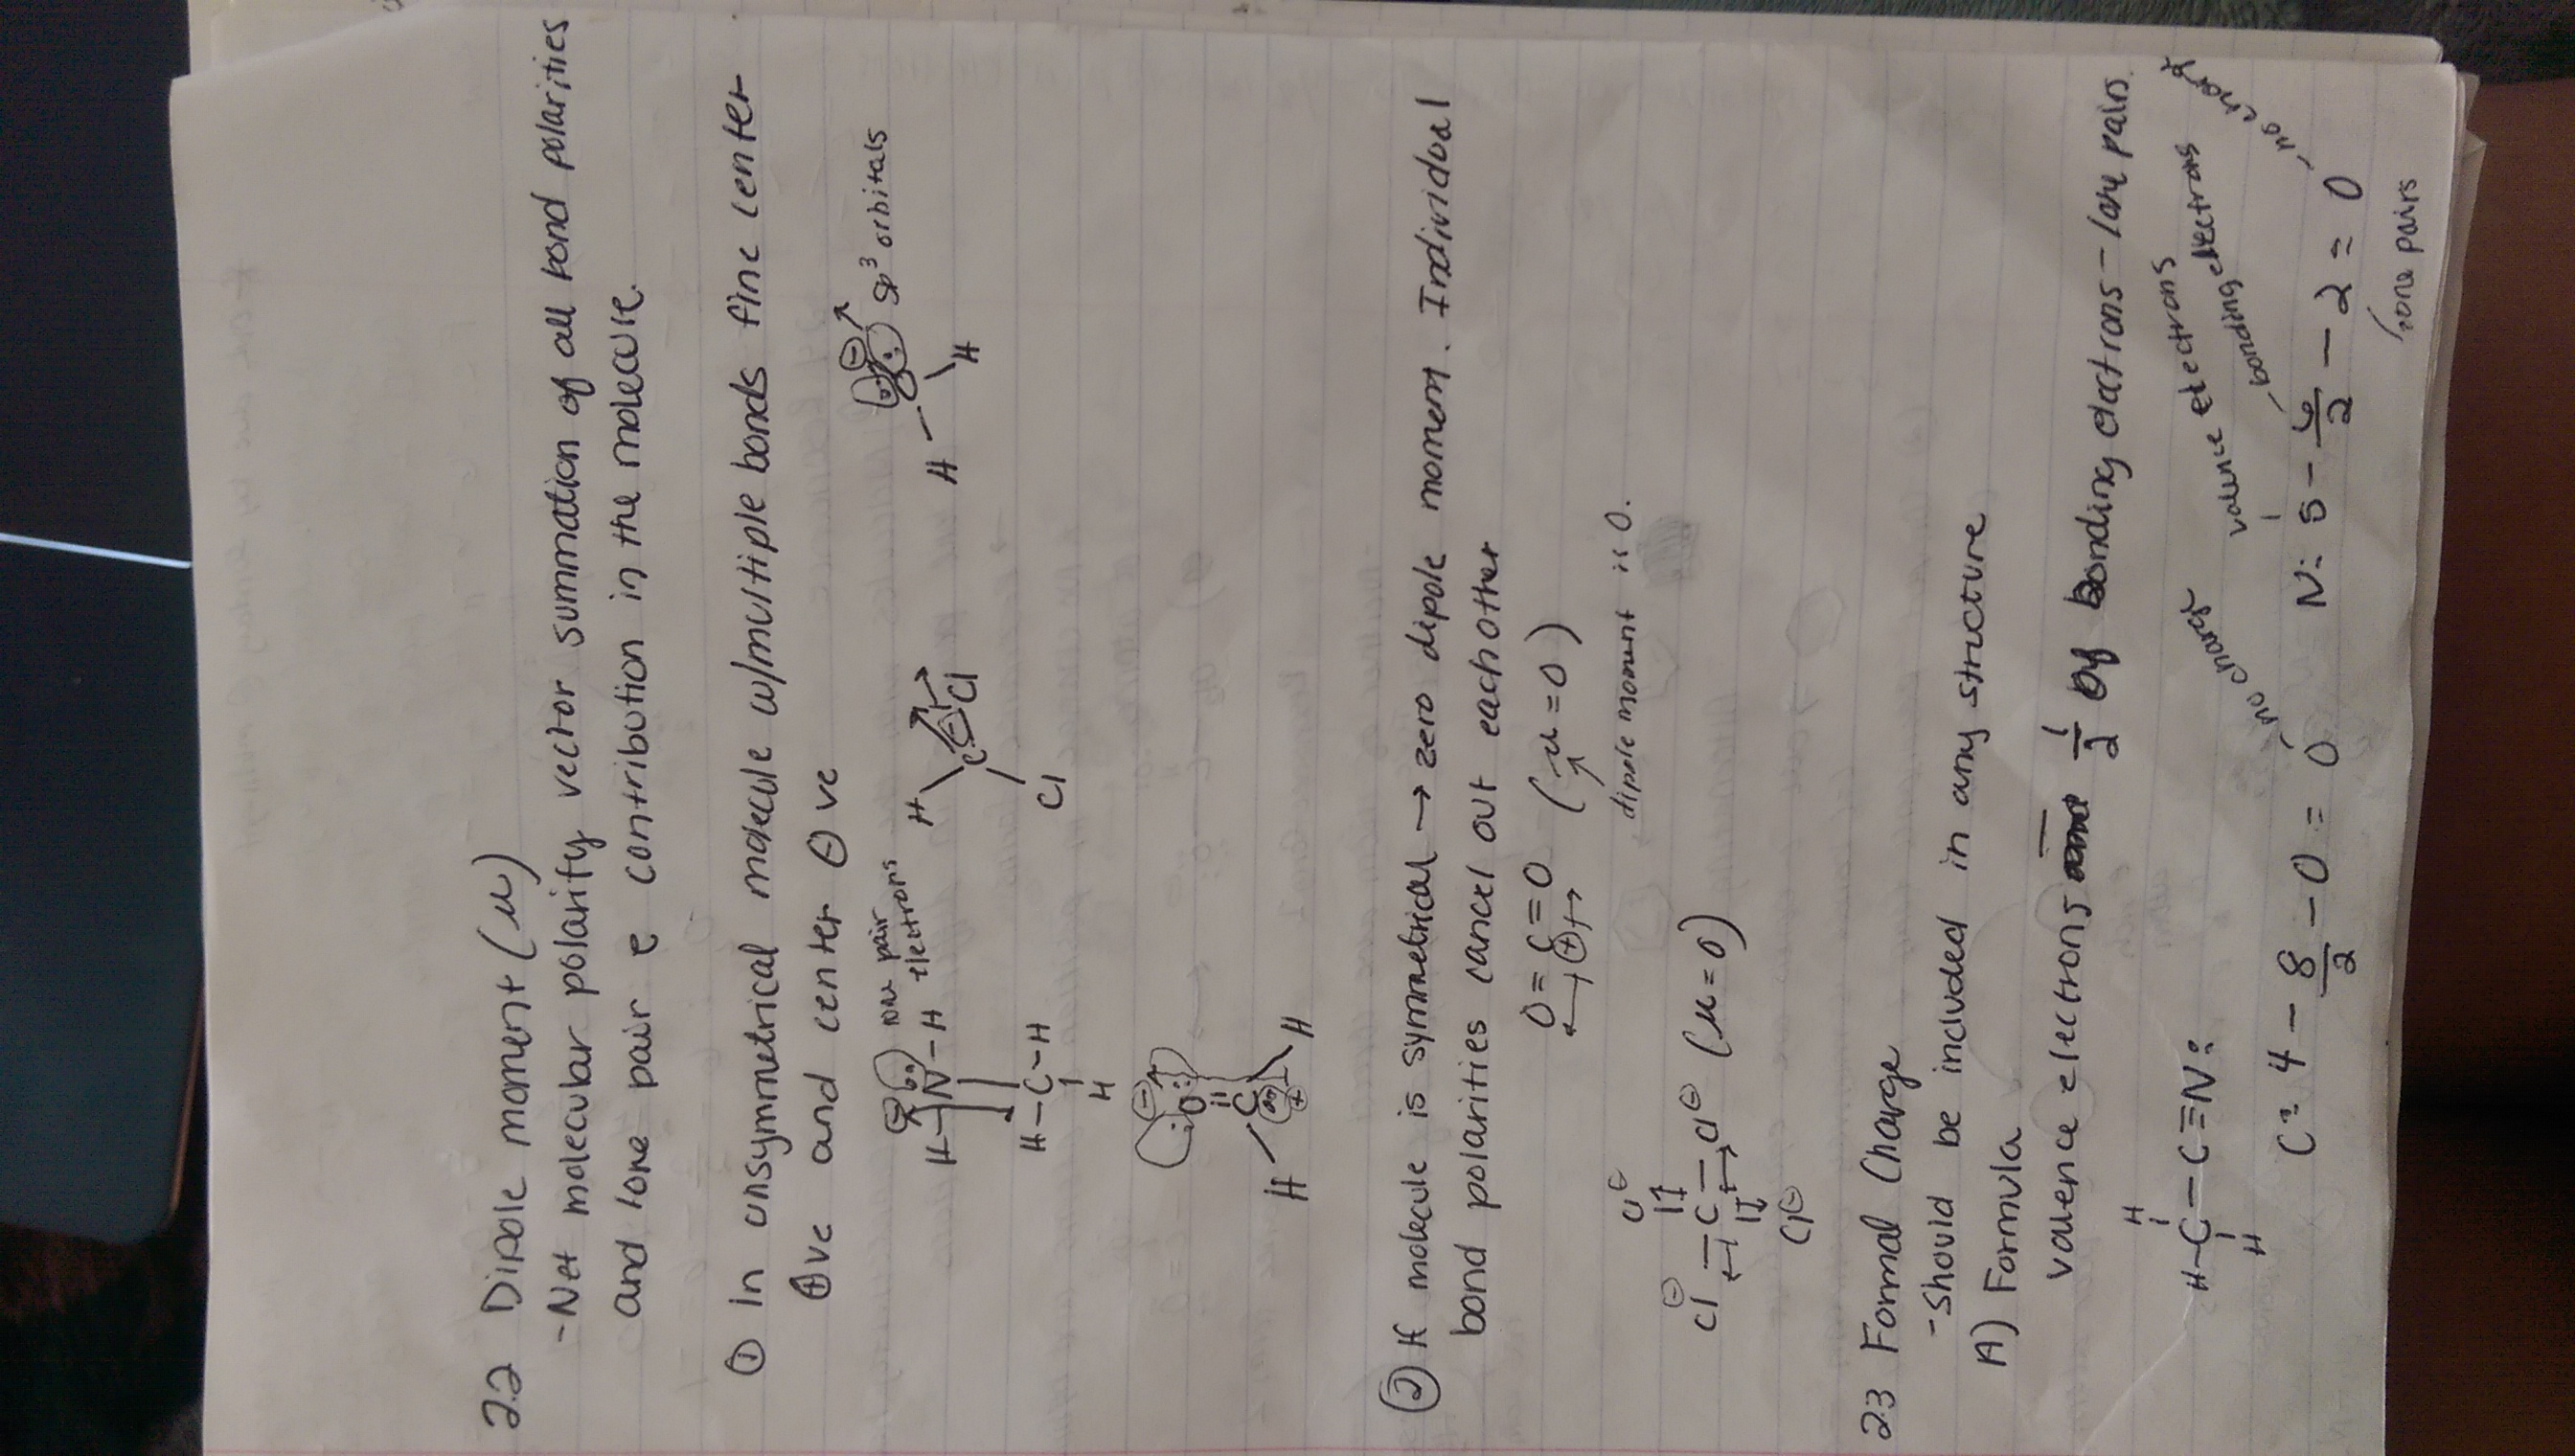 2.2 Dipole moment (u)
-Net molecular polarity vector summation of all bond polarities
and lone pair e contribution in the molecule.
① In unsymmetrical molecule w/multiple bonds finc center
⊕ve and center ⊖ve
⊖ lone pair
electrons
H-N-H
H-C-H
H
H
C
Cl
Cl
⊖
sp³ orbitals
H
H
⊖
:O:
C
H
H
⊕
② If molecule is symmetrical → zero dipole moment. Individual
bond polarities cancel out each other
O=C=O (u=0)
⊕
dipole moment is 0.
Cl⊖
Cl⊖-C-Cl⊖ (u=0)
Cl⊖
2.3 Formal Charge
-Should be included in any structure
A) Formula
valence electrons - 1/2 of bonding electrons - lone pairs
H
H-C-C≡N:
H
no charge
valence electrons
bonding electrons
no charge
C: 4 - 8/2 - 0 = 0
N: 5 - 6/2 - 2 = 0
lone pairs